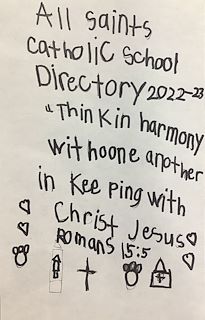 All saints
catholic School
Directory 2022-23
"Think in harmony
withoone another
in Kee ping with
Christ Jesus
Romans 15:5